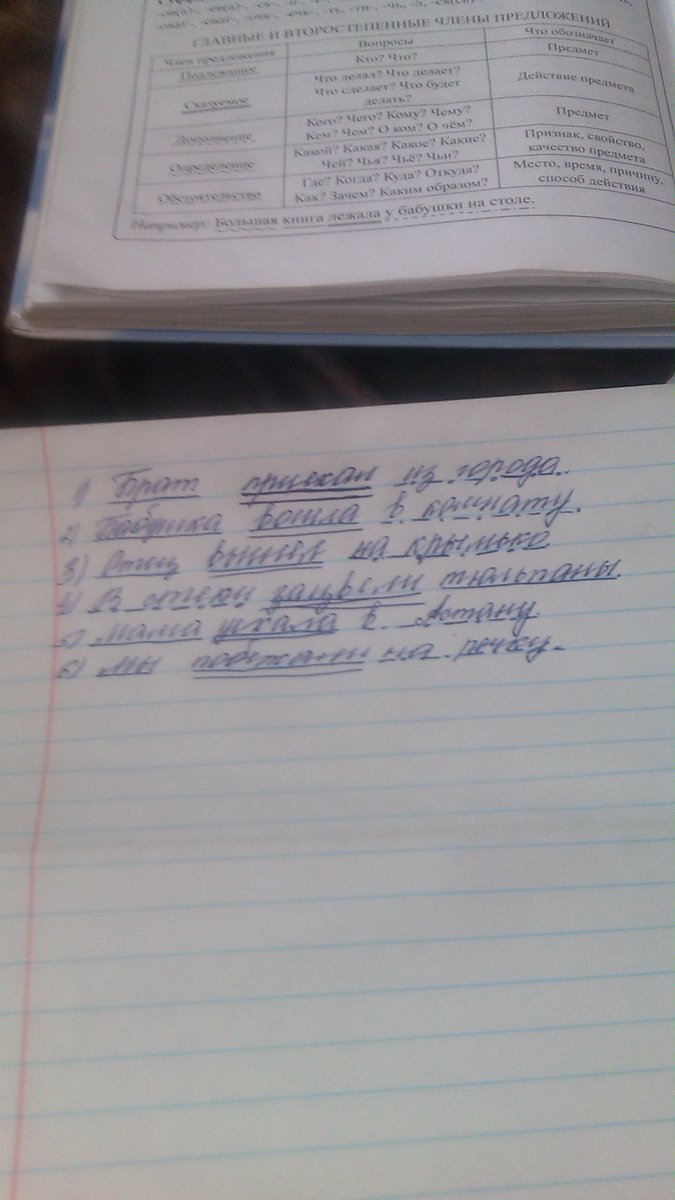 ГЛАВНЫЕ И ВТОРОСТЕПЕННЫЕ ЧЛЕНЫ ПРЕДЛОЖЕНИЙ
Член предложения Вопросы Что обозначает
Подлежащее Кто? Что? Предмет
Сказуемое Что делал? Что делает? Что сделает? Что будет делать? Действие предмета
Дополнение Кого? Чего? Кому? Чему? Кем? Чем? О ком? О чём? Предмет
Определение Какой? Какая? Какое? Какие? Чей? Чья? Чьё? Чьи? Признак, свойство, качество предмета
Обстоятельство Где? Когда? Куда? Откуда? Как? Зачем? Каким образом? Место, время, причину, способ действия
Например: Большая книга лежала у бабушки на столе.
1) Брат приехал из города.
2) Бабушка вошла в комнату.
3) Отец вышел на крыльцо
4) В степи зацвели тюльпаны.
5) Мама уехала в Астану
6) Мы побежали на речку.